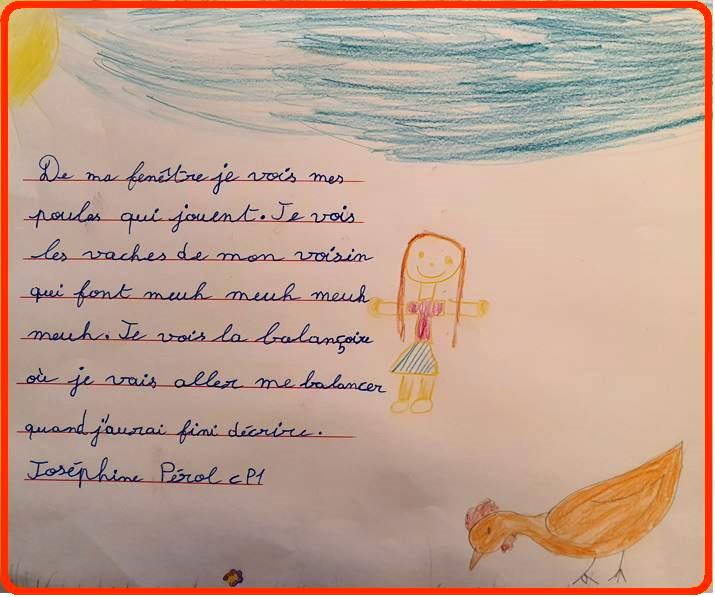 De ma fenêtre je vois mes
poules qui jouent. Je vois
les vaches de mon voisin
qui font meuh meuh meuh
meuh. Je vois la balançoire
où je vais aller me balancer
quand j'aurai fini décrire.
Joséphine Pérol CP1